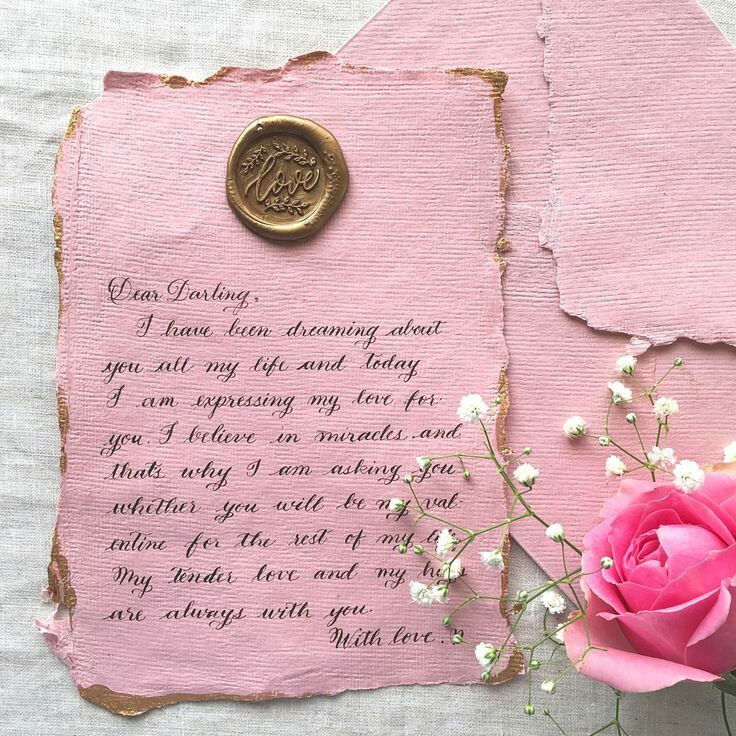 love
Dear Darling,
I have been dreaming about
you all my life and today
I am expressing my love for
you. I believe in miracles and
that's why I am asking you
whether you will be my val-
entine for the rest of my life.
My tender love and my hugs
are always with you.
With love.